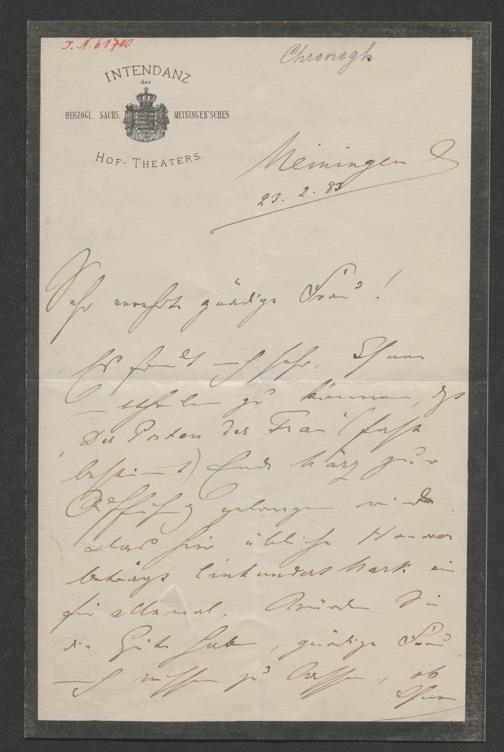 I. N. 61700
Chronegk
INTENDANZ
des
HERZOGL. SACHS. MEININGEN'SCHEN
HOF-THEATERS.
Meiningen
23. 2. 83
Sehr verehrte gnädige Frau!
Es freut mich sehr, Ihnen
mittheilen zu können, daß
Der Posten der Frau (fast
bestimmt) Ende März zur
gelangen wird.
Das hier übliche Honorar
beträgt Einhundert Mark ein
für allemal. Würden Sie
die Güte haben, gnädige Frau,
mich wissen zu lassen, ob
Ihnen